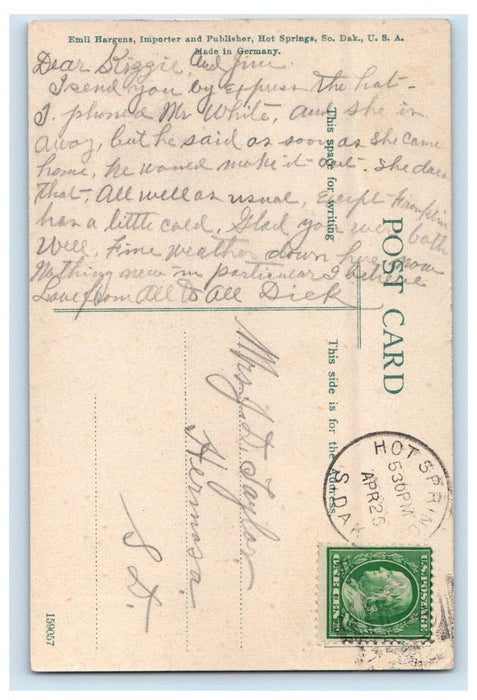 Emil Hargens, Importer and Publisher, Hot Springs, So. Dak., U. S. A.
Made in Germany.
Dear Kizzie, and Jim
I send you by express the hat.
I. phoned Mr White, and she is
away, but he said as soon as she came
home, he would make it out. She does
that. All well as usual, except
has a little cold. Glad you were both
Well. Fine weather down here now
Nothing new in particular I believe
Love from All to All Dick
This space for writing
POST CARD
This side is for the Address
Mrs J. D. Taylor.
Hermosa.
S D.
HOT SPRIN
530PM
APR 26
S.DAK
U.S. POSTAGE
ONE CENT
159057